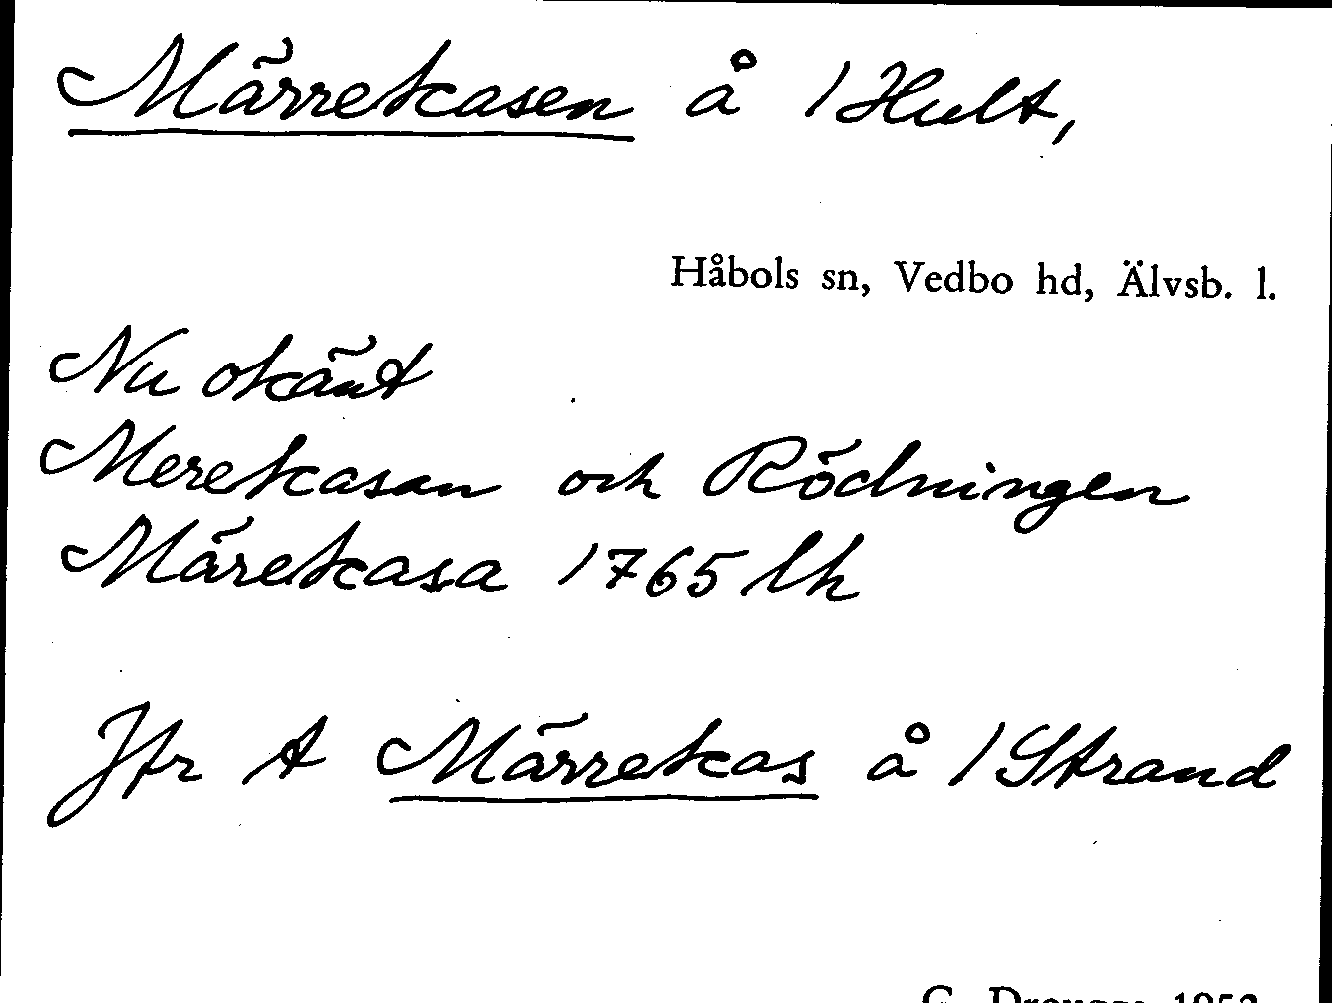 Märrekasen å /Hult,
Håbols sn, Vedbo hd, Älvsb. l.
Nu okänt
Merekasan och Rödningen
Märekasa 1765 lh
Jfr t Märrekas å /Strand